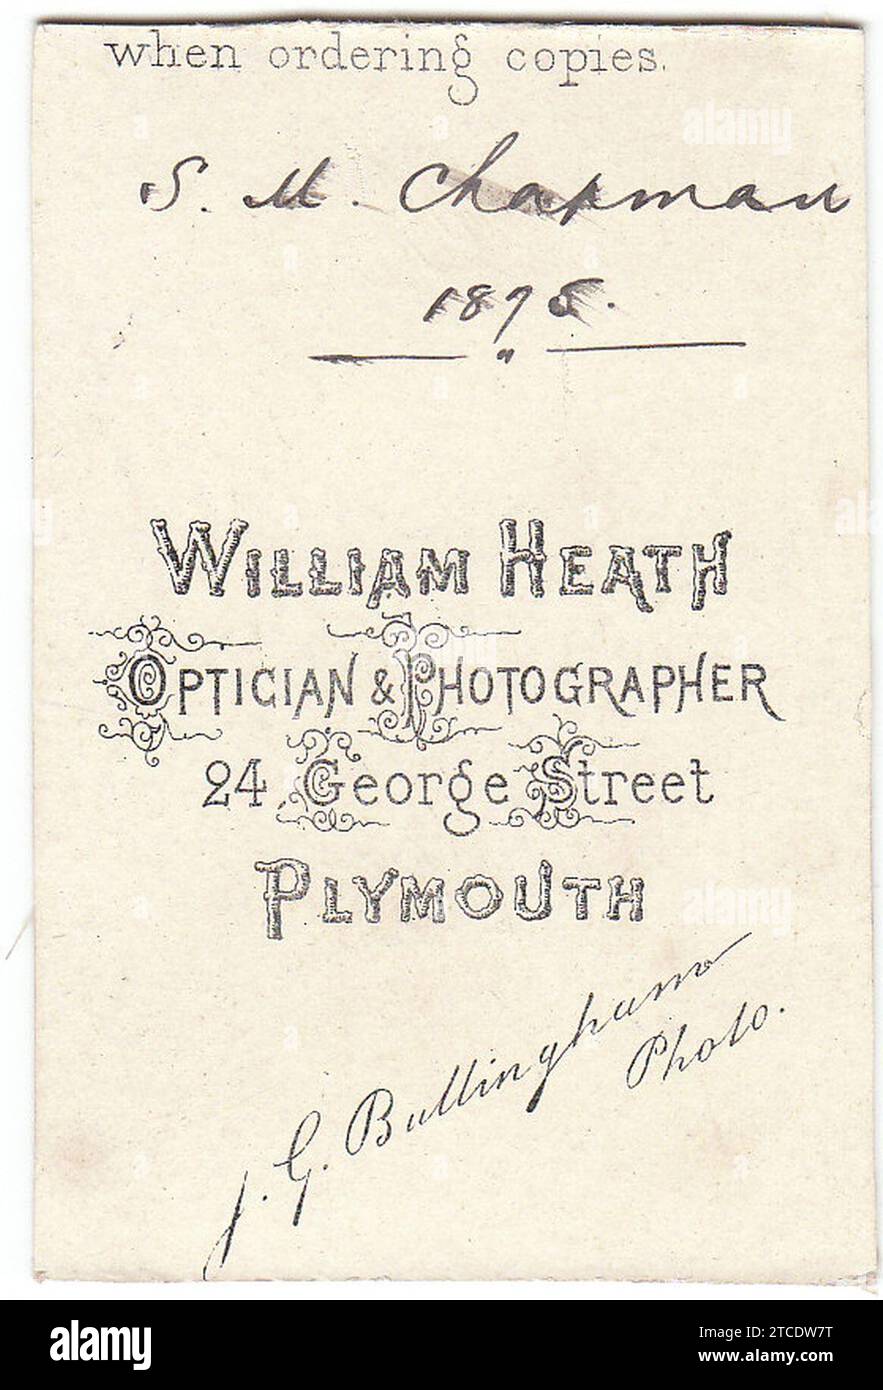 when ordering copies.
S. M. Chapman
1895.
"
WILLIAM HEATH
OPTICIAN & PHOTOGRAPHER
24 George Street
PLYMOUTH
J. G. Bullingham
Photo.
alamy
Image ID: 2TCDW7T
www.alamy.com